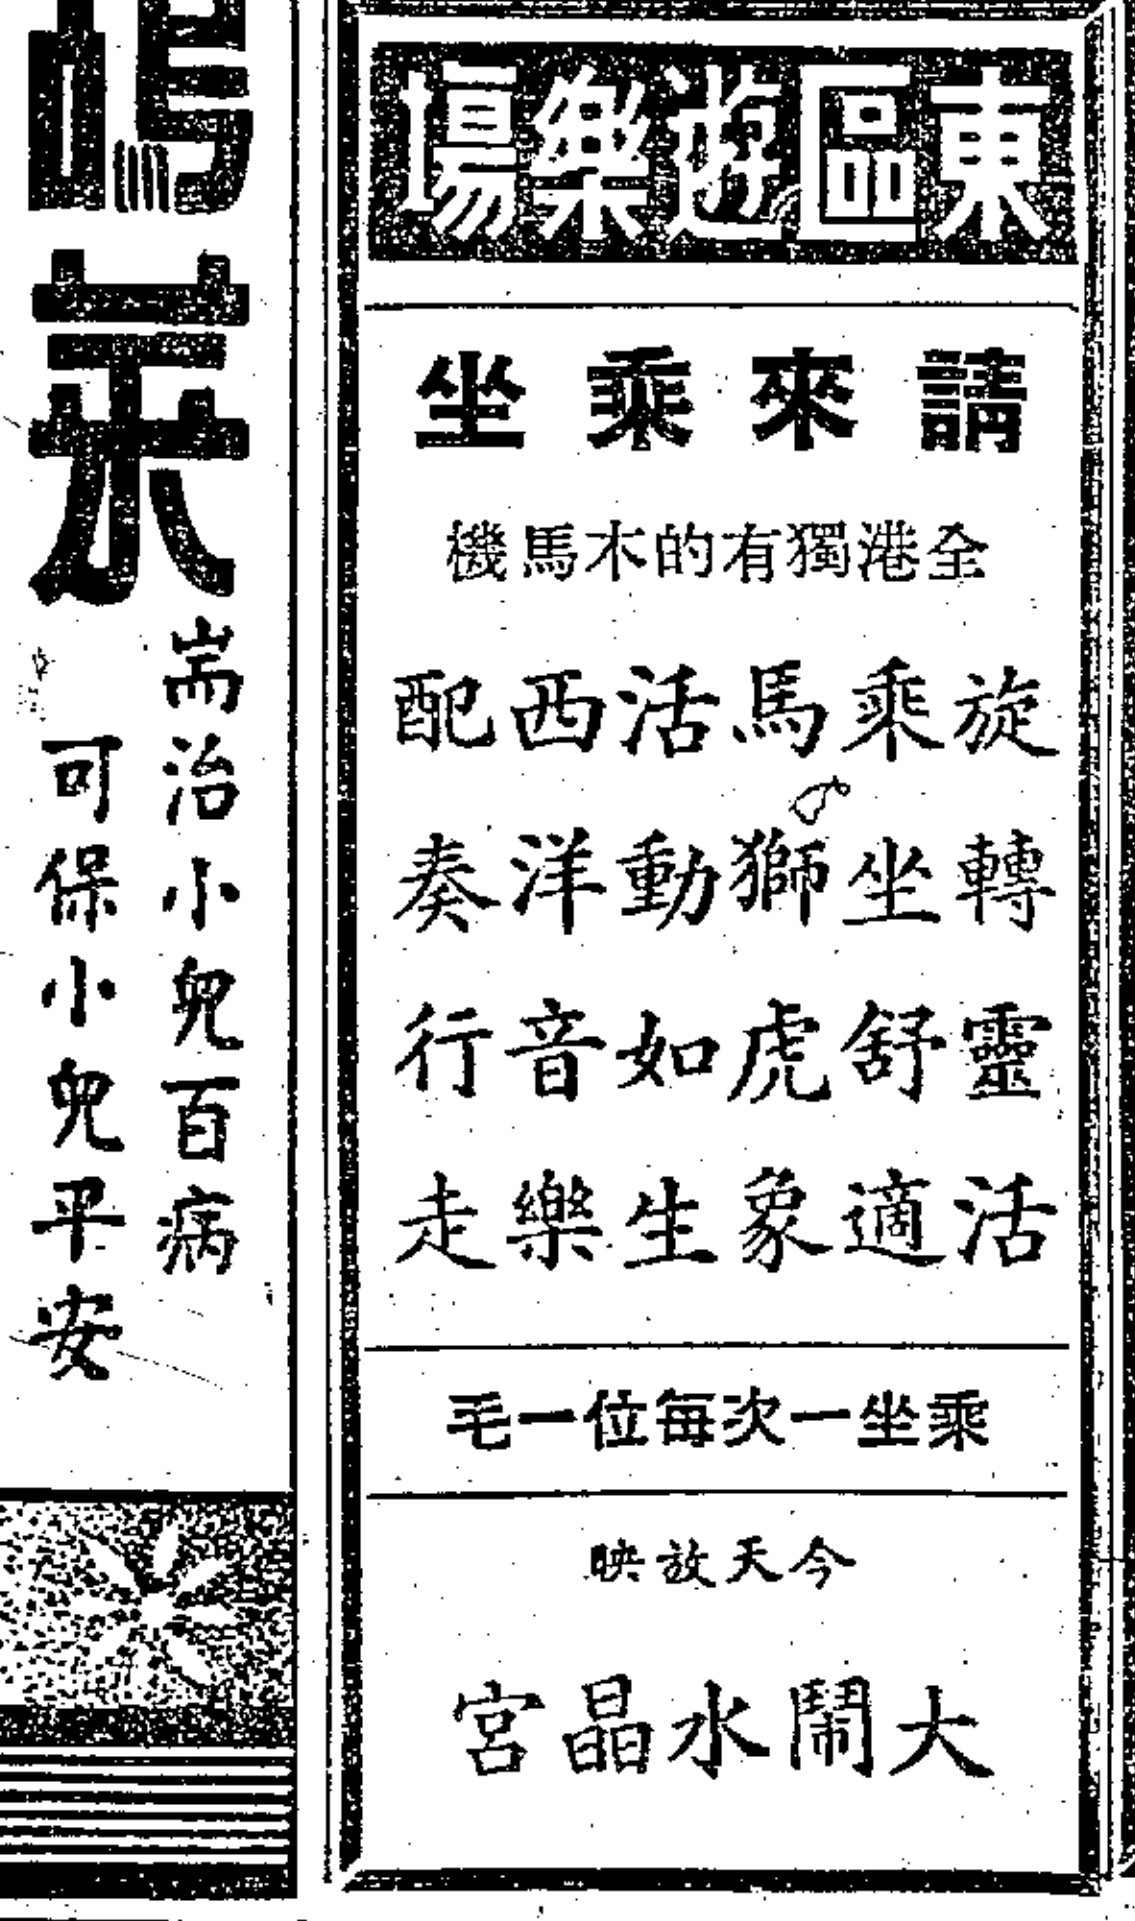 東區遊樂場
請來乘坐
全港獨有的木馬機
旋轉靈活
乘坐舒適
馬獅虎象
活動如生
西洋音樂
配奏行走
乘坐一次每位一毛
今天放映
大鬧水晶宮
耑治小兒百病
可保小兒平安